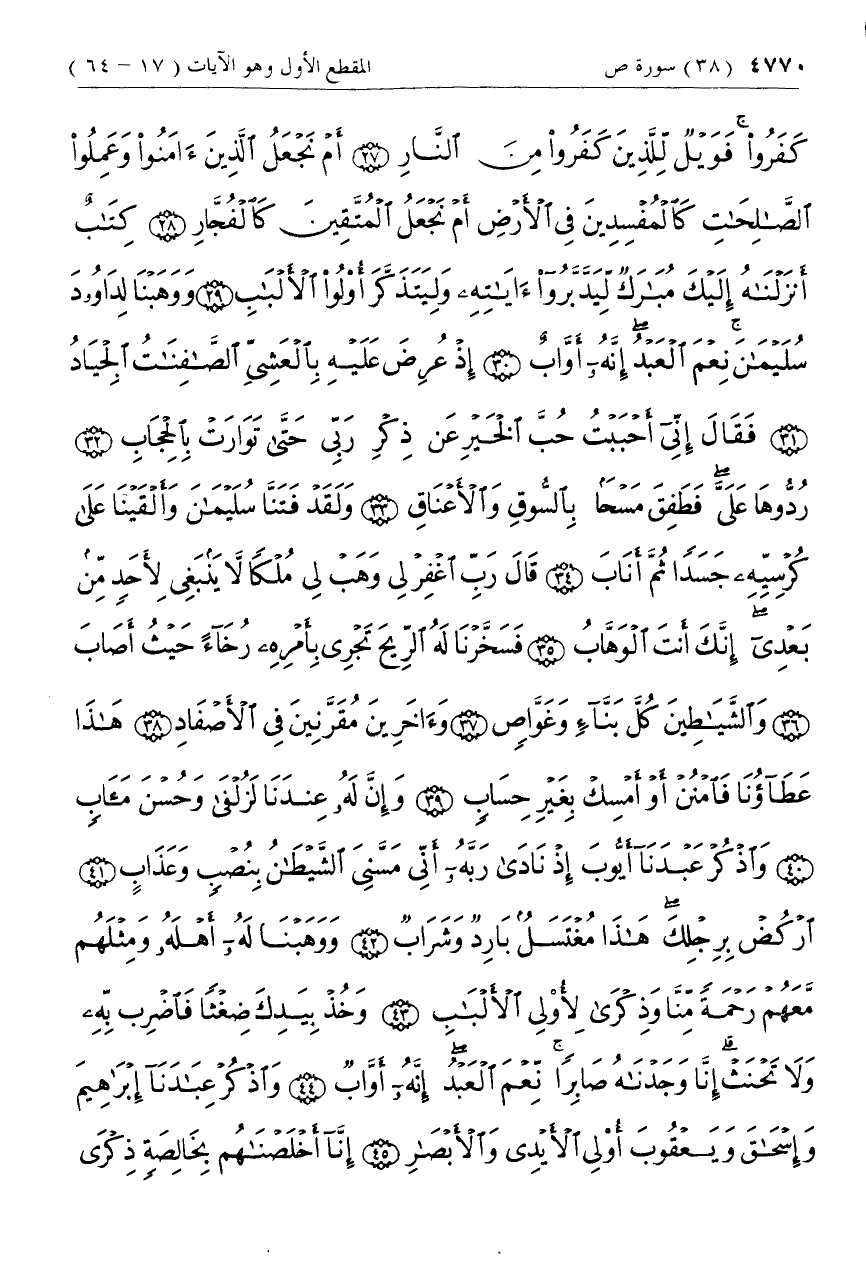 ٤٧٧٠ (٣٨) سورة ص المقطع الأول وهو الآيات (١٧ – ٦٤)
كَفَرُوا۟ ۚ فَوَيْلٌ لِّلَّذِينَ كَفَرُوا۟ مِنَ ٱلنَّارِ ٢٧ أَمْ نَجْعَلُ ٱلَّذِينَ ءَامَنُوا۟ وَعَمِلُوا۟
ٱلصَّـٰلِحَـٰتِ كَٱلْمُفْسِدِينَ فِى ٱلْأَرْضِ أَمْ نَجْعَلُ ٱلْمُتَّقِينَ كَٱلْفُجَّارِ ٢٨ كِتَـٰبٌ
أَنزَلْنَـٰهُ إِلَيْكَ مُبَـٰرَكٌ لِّيَدَّبَّرُوٓا۟ ءَايَـٰتِهِۦ وَلِيَتَذَكَّرَ أُو۟لُوا۟ ٱلْأَلْبَـٰبِ ٢٩ وَوَهَبْنَا لِدَاوُۥدَ
سُلَيْمَـٰنَ ۚ نِعْمَ ٱلْعَبْدُ ۖ إِنَّهُۥٓ أَوَّابٌ ٣٠ إِذْ عُرِضَ عَلَيْهِ بِٱلْعَشِىِّ ٱلصَّـٰفِنَـٰتُ ٱلْجِيَادُ
٣١ فَقَالَ إِنِّىٓ أَحْبَبْتُ حُبَّ ٱلْخَيْرِ عَن ذِكْرِ رَبِّى حَتَّىٰ تَوَارَتْ بِٱلْحِجَابِ ٣٢
رُدُّوهَا عَلَىَّ ۖ فَطَفِقَ مَسْحًۢا بِٱلسُّوقِ وَٱلْأَعْنَاقِ ٣٣ وَلَقَدْ فَتَنَّا سُلَيْمَـٰنَ وَأَلْقَيْنَا عَلَىٰ
كُرْسِيِّهِۦ جَسَدًا ثُمَّ أَنَابَ ٣٤ قَالَ رَبِّ ٱغْفِرْ لِى وَهَبْ لِى مُلْكًا لَّا يَنۢبَغِى لِأَحَدٍ مِّنۢ
بَعْدِىٓ ۖ إِنَّكَ أَنتَ ٱلْوَهَّابُ ٣٥ فَسَخَّرْنَا لَهُ ٱلرِّيحَ تَجْرِى بِأَمْرِهِۦ رُخَآءً حَيْثُ أَصَابَ
٣٦ وَٱلشَّيَـٰطِينَ كُلَّ بَنَّآءٍ وَغَوَّاصٍ ٣٧ وَءَاخَرِينَ مُقَرَّنِينَ فِى ٱلْأَصْفَادِ ٣٨ هَـٰذَا
عَطَآؤُنَا فَٱمْنُنْ أَوْ أَمْسِكْ بِغَيْرِ حِسَابٍ ٣٩ وَإِنَّ لَهُۥ عِندَنَا لَزُلْفَىٰ وَحُسْنَ مَـَٔابٍ
٤٠ وَٱذْكُرْ عَبْدَنَآ أَيُّوبَ إِذْ نَادَىٰ رَبَّهُۥٓ أَنِّى مَسَّنِىَ ٱلشَّيْطَـٰنُ بِنُصْبٍ وَعَذَابٍ ٤١
ٱرْكُضْ بِرِجْلِكَ ۖ هَـٰذَا مُغْتَسَلٌۢ بَارِدٌ وَشَرَابٌ ٤٢ وَوَهَبْنَا لَهُۥٓ أَهْلَهُۥ وَمِثْلَهُم
مَّعَهُمْ رَحْمَةً مِّنَّا وَذِكْرَىٰ لِأُو۟لِى ٱلْأَلْبَـٰبِ ٤٣ وَخُذْ بِيَدِكَ ضِغْثًا فَٱضْرِب بِّهِۦ
وَلَا تَحْنَثْ ۗ إِنَّا وَجَدْنَـٰهُ صَابِرًا ۚ نِّعْمَ ٱلْعَبْدُ ۖ إِنَّهُۥٓ أَوَّابٌ ٤٤ وَٱذْكُرْ عِبَـٰدَنَآ إِبْرَٰهِيمَ
وَإِسْحَـٰقَ وَيَعْقُوبَ أُو۟لِى ٱلْأَيْدِى وَٱلْأَبْصَـٰرِ ٤٥ إِنَّآ أَخْلَصْنَـٰهُم بِخَالِصَةٍ ذِكْرَى